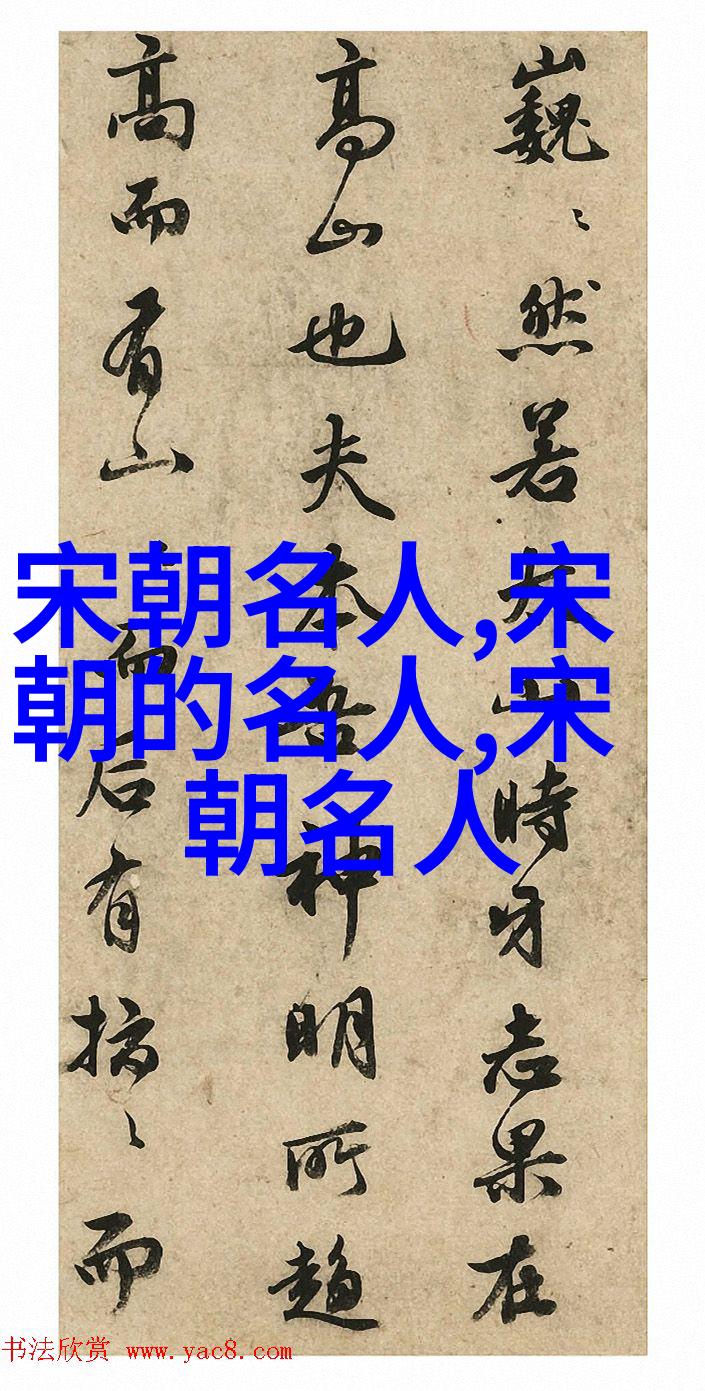 巍々然若太山時牙志果在
高山也夫本吾神明所趨
高而有山而后有々而
宋朝名人,宋
朝的名人,宋
朝名人
书法欣赏 www.yac8.com